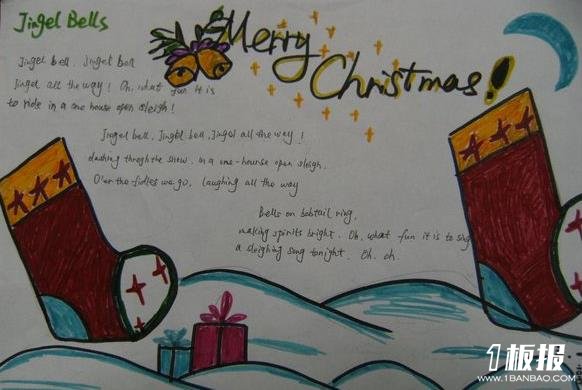 Jingel Bells
Merry
Christmas!
Jingel bell, Jingel bell
Jingel all the way! Oh, what fun it is
to ride in a one house open sleigh!
Jingel bell, Jingel bell, Jingel all the way!
dashing throght the show, in a one-hourse open sleigh.
O'er the fidles we go, laughing all the way
Bells on bobtail ring,
making spirits bright. Oh, what fun it is to sing
a sleighing song tonight. Oh, oh.
1板报
WWW.1BANBAO.COM